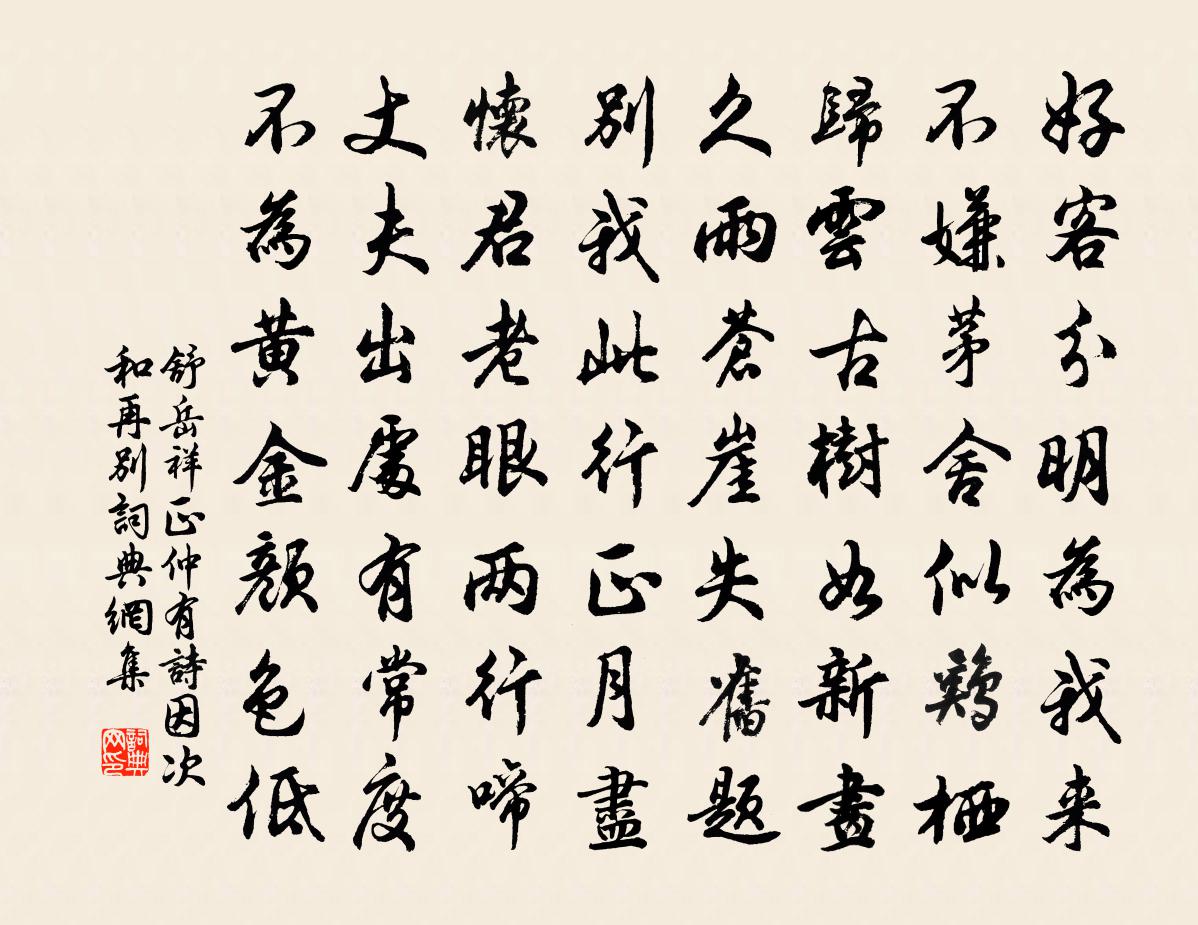 好客分明為我来
不嫌茅舍似鷄栖
歸雲古樹如新畫
久雨蒼崖失舊題
別我此行正月盡
懷君老眼两行啼
丈夫出處有常度
不為黄金顔色低
舒岳祥正仲有詩因次
和再別詞典網集
詞典网印